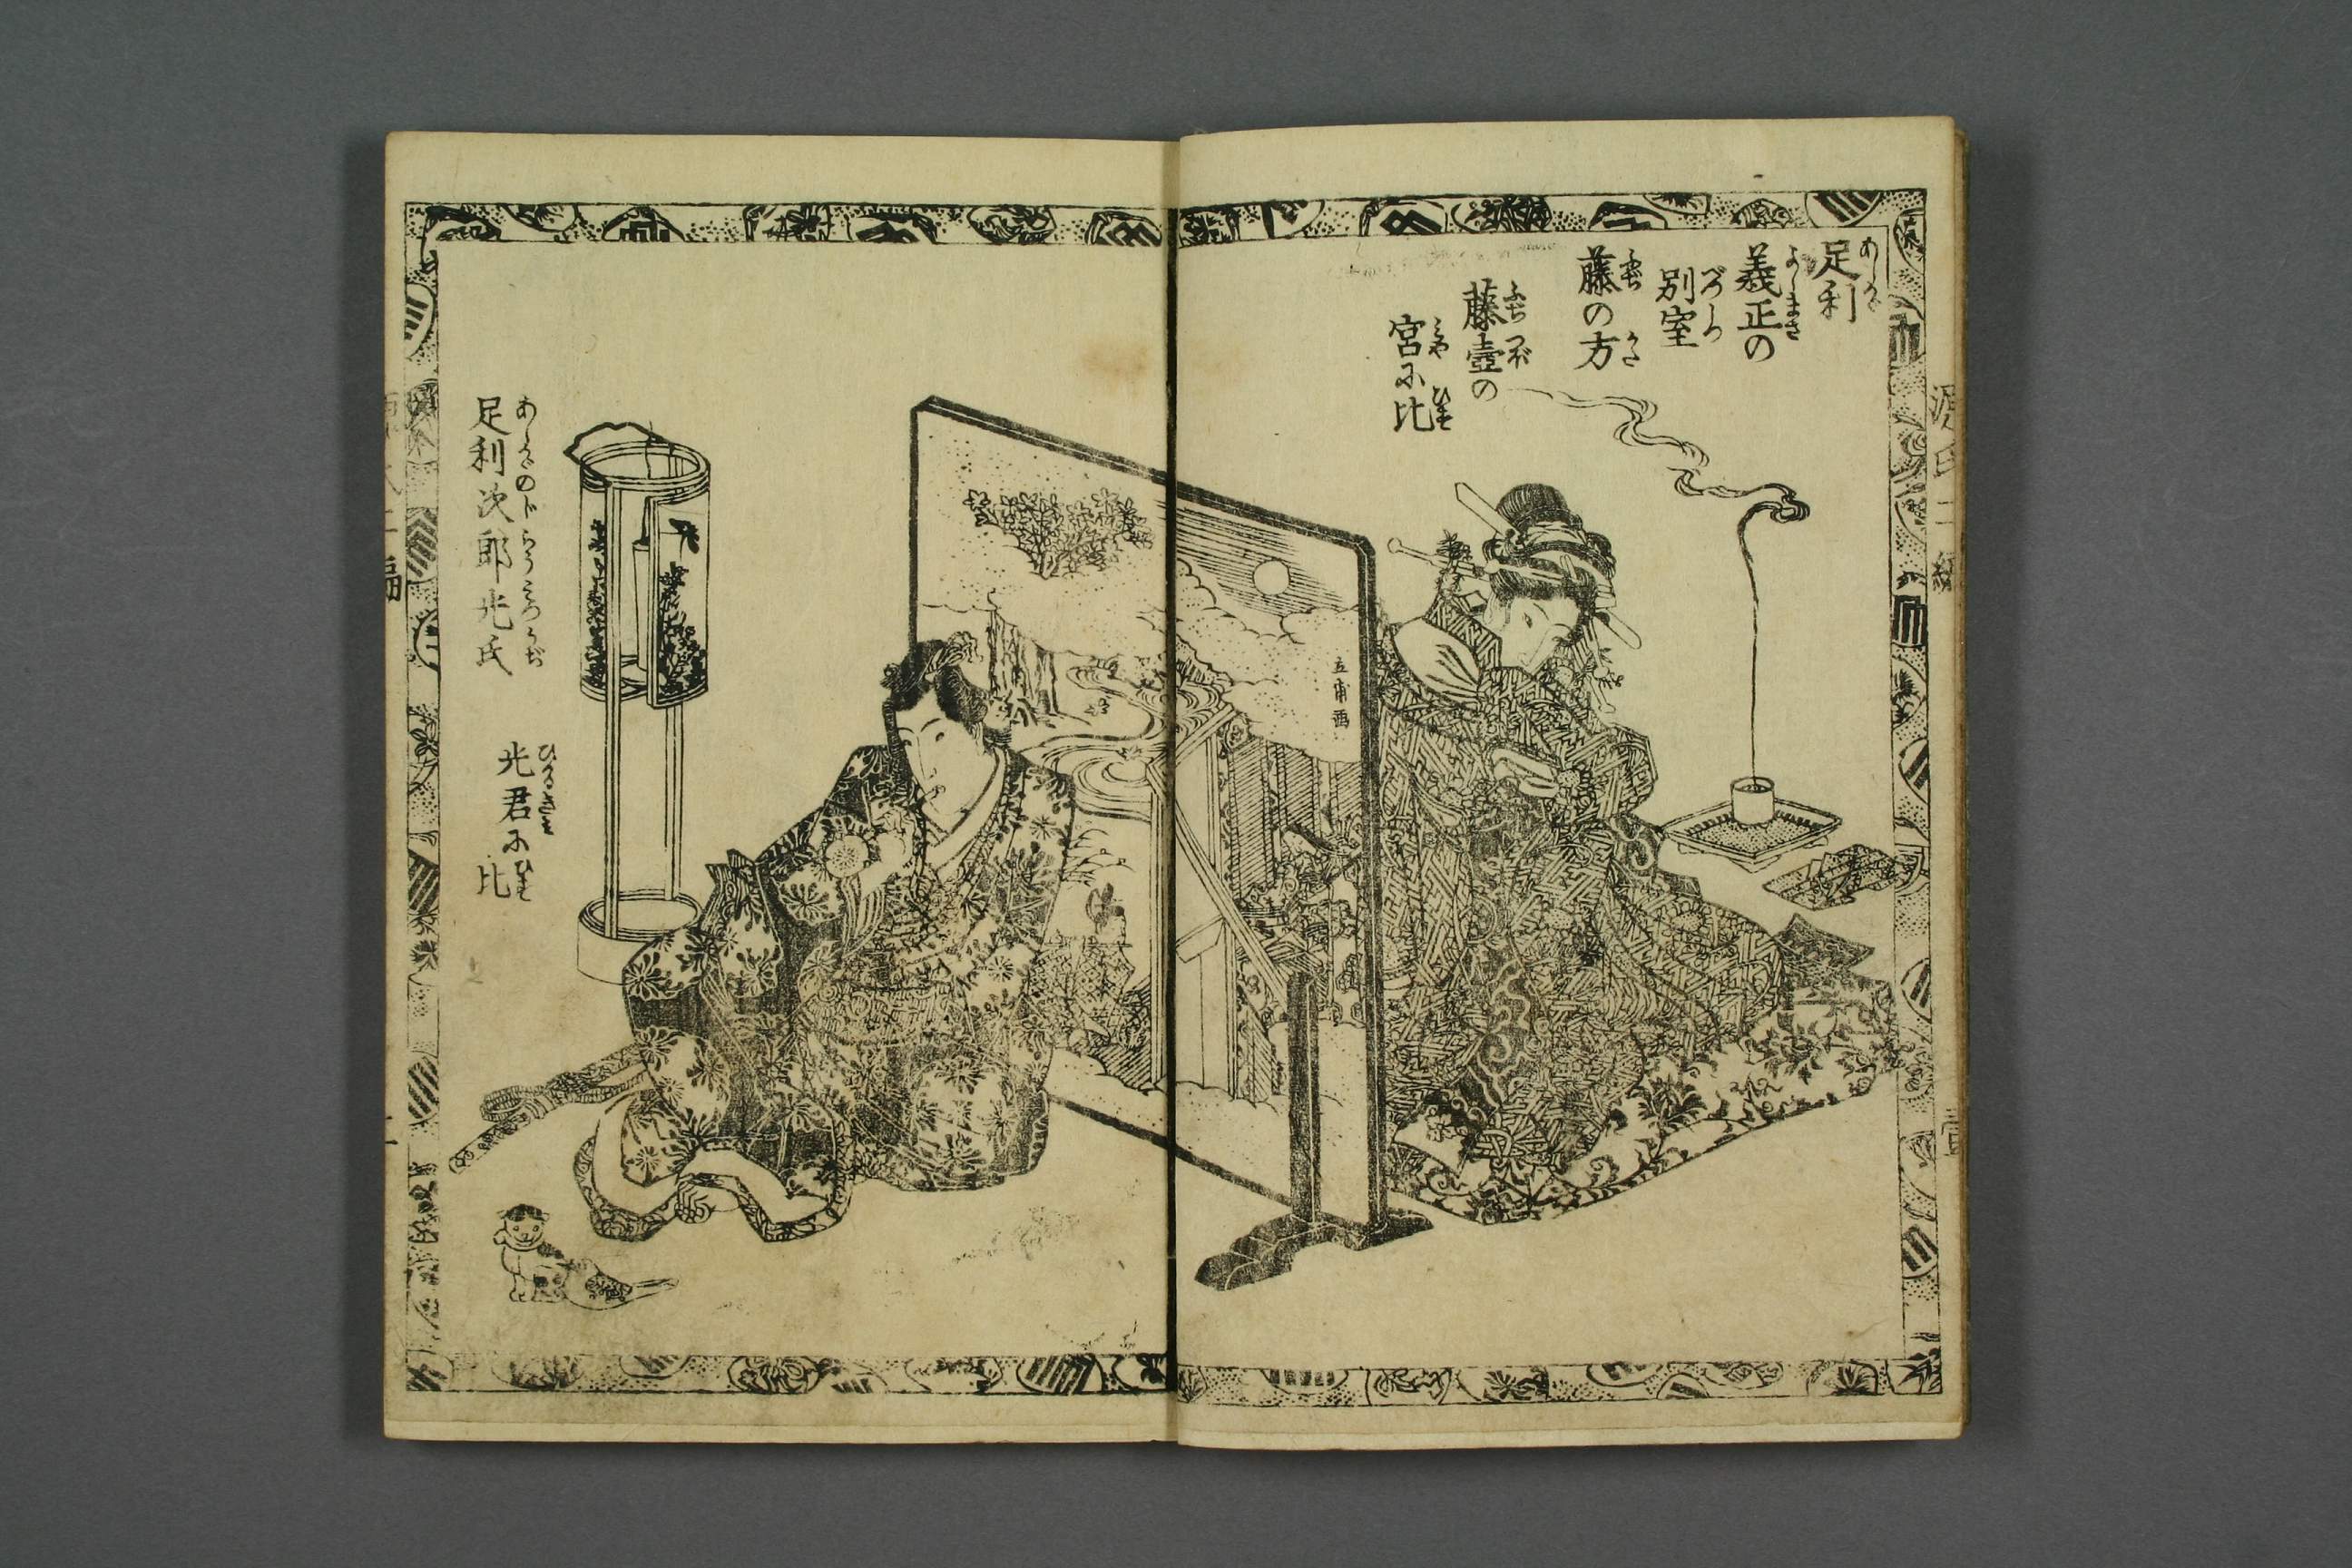 足利
義正の
別室
藤の方
藤壺の
宮に比
立甫画
足利次郎光氏
光君に比
源氏二編